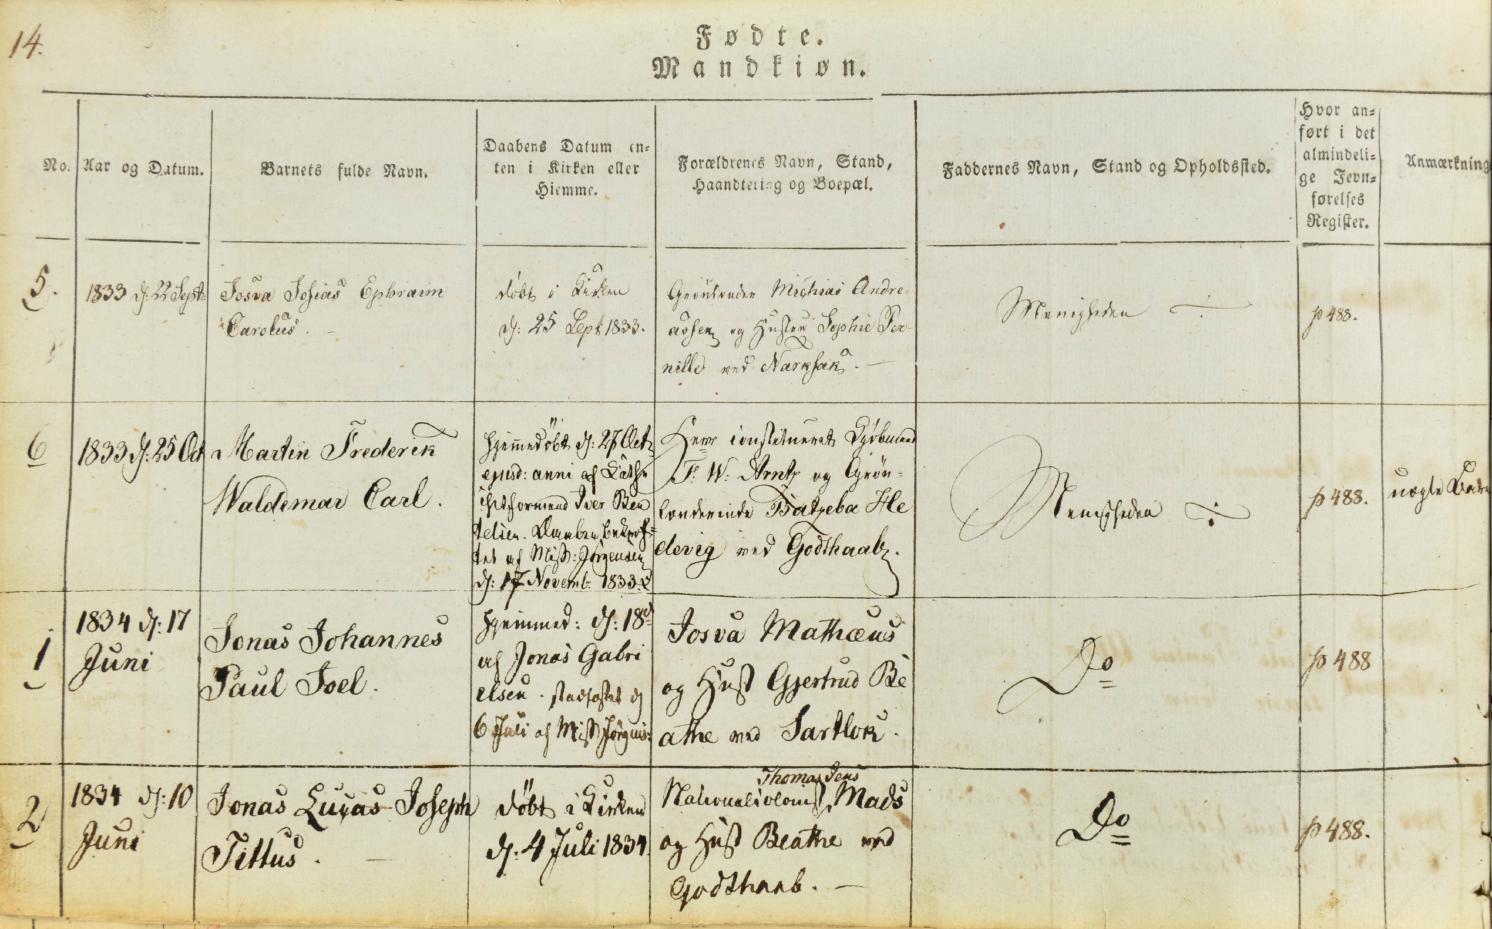 14.
Fødte.
Mandkiøn.
No.
Aar og Datum.
Barnets fulde Navn.
Daabens Datum en-
ten i Kirken eller
Hiemme.
Forældrenes Navn, Stand,
Haandtering og Boepæl.
Faddernes Navn, Stand og Opholdssted.
Hvor an-
ført i det
almindeli-
ge Jevn-
førelses
Register.
Anmærkning
5.
1833 d: 22 Sept:
Josva Josias Ephraim
Carolus.
døbt i Kirken
d: 25 Sept 1833.
Grønlænder Michias Andre-
asen og Hustru Sophie Per-
nille ved Narksak.
Menigheden
p 488.
6
1833 d: 25 Oct
Martin Frederik
Waldemar Carl.
hjemmedøbt d: 27 Oct
ejusd: anni af
Iver Ber
telsen. Daaben bekræf-
tet af Miss: Jørgensen
d: 17 Novemb: 1833.
Herr constitueret Kjøbmand
F. W. Arntz og Grøn-
lænderinde Batzeba He
devig ved Godthaab.
Menigheden
p 488.
uægte
1
1834 d: 17
Juni
Jonas Johannes
Paul Joel.
hjemmed: d: 18d
af Jonas Gabri
elsen. stadfæstet d
6 Juli af Miss Jørgens:
Josva Mathæus
og Hust Gjertrud Be
athe ved Sartlok.
Do
p 488
2
1834 d: 10
Juni
Jonas Lucas Joseph
Tittus.
døbt i Kirken
d: 4 Juli 1834.
Thomas Jens
Mads
og Hust Beathe ved
Godthaab.
Do
p 488.